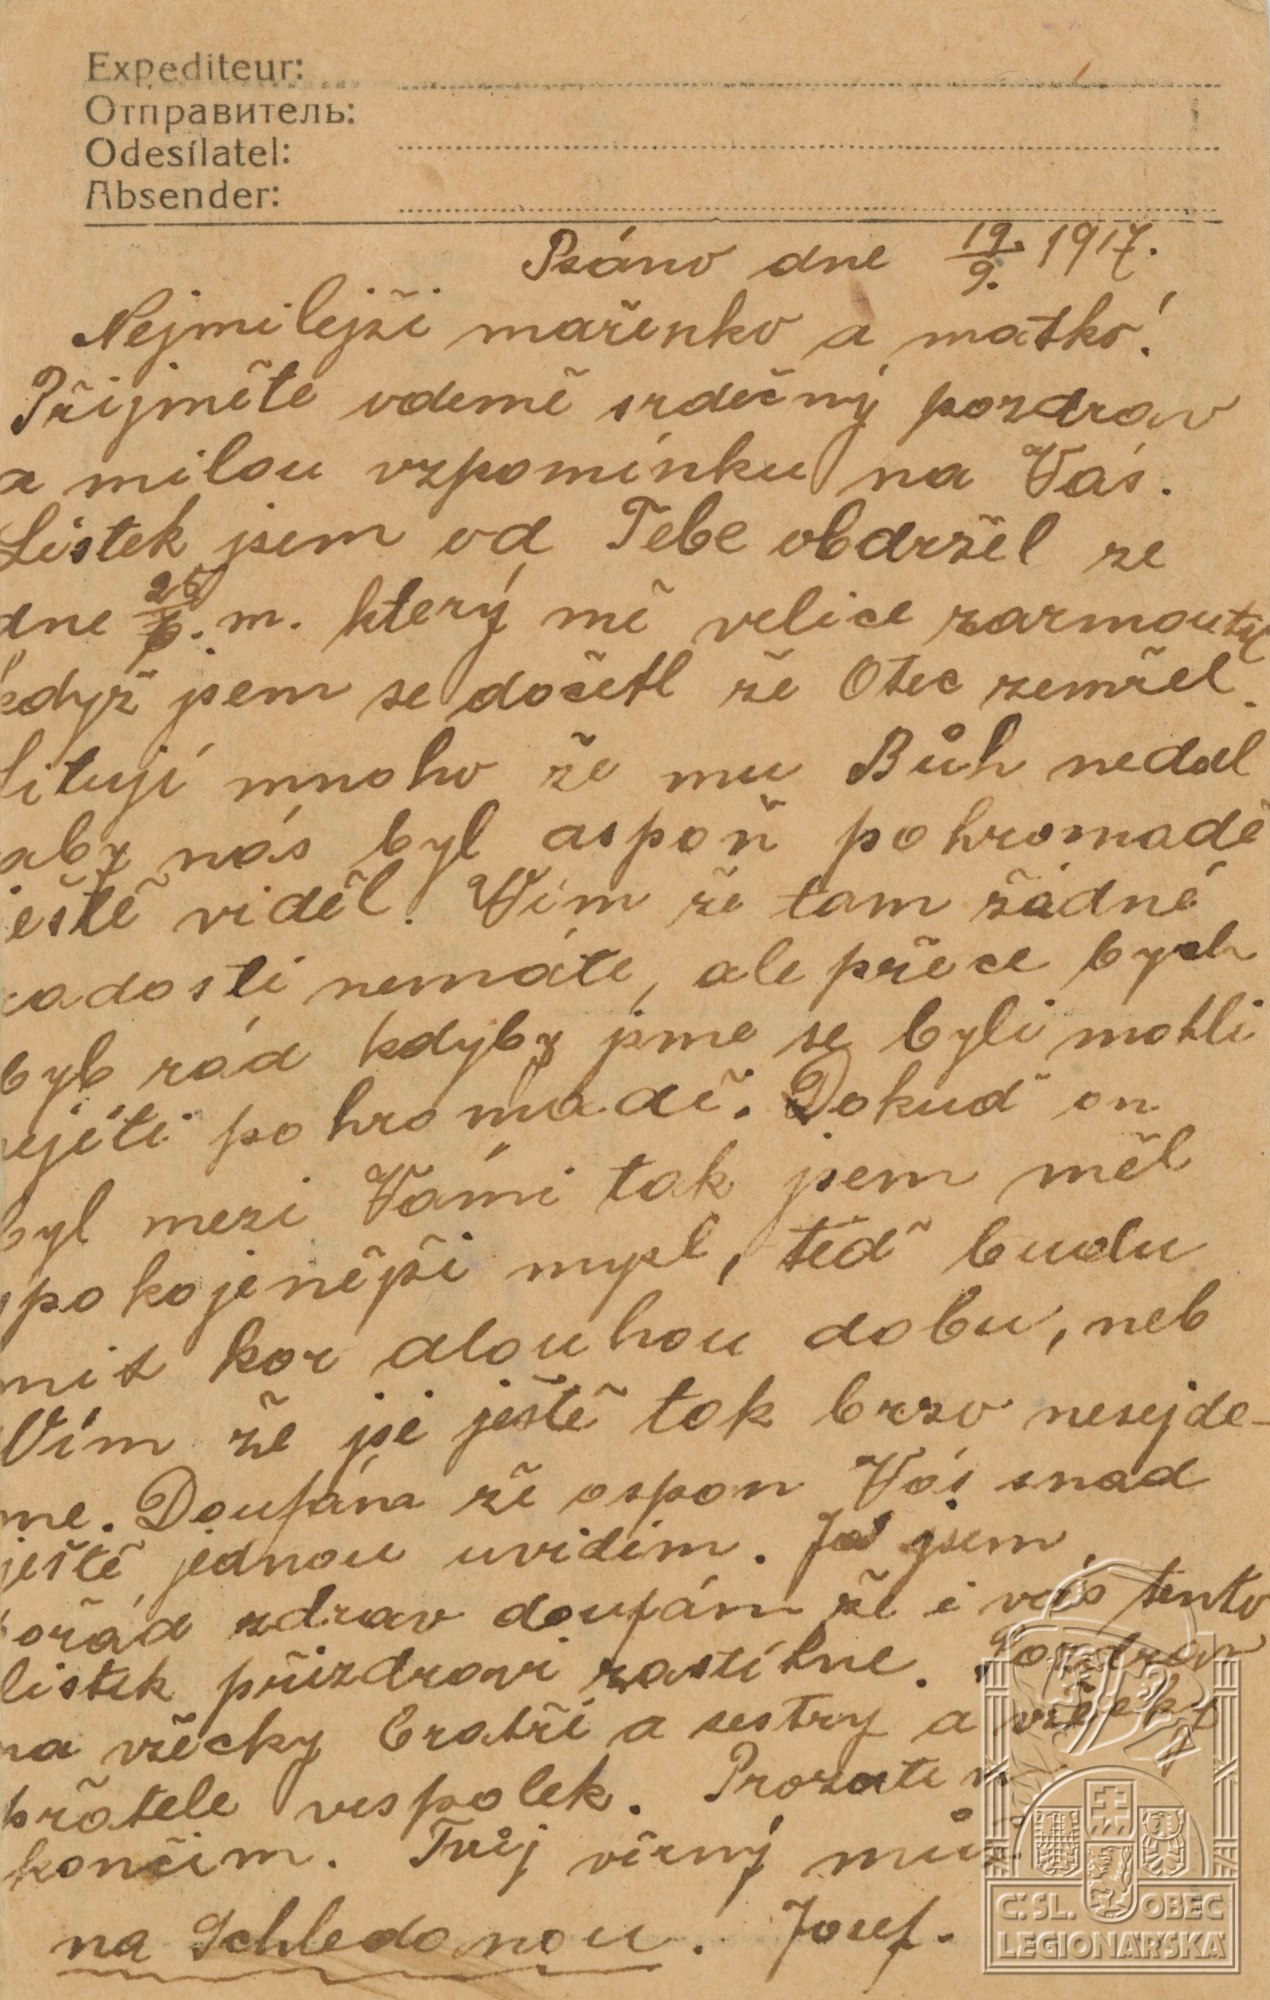 Expediteur:
Отправитель:
Odesílatel:
Absender:
Psáno dne 19./9. 1917.
Nejmilejši mařenko a matko!
Přijměte odemě srdečný pozdrav
a milou vzpomínku na Vás.
Listek jsem od Tebe obdržel ze
dne 25/6. m. který mě velice zarmoutil
když jsem se dočetl že Otec zemřel.
Lituji mnoho že mu Bůh nedal
aby nás byl aspoň pohromadě
ještě viděl. Vím že tam žádné
radosti nemáte, ale přece bych
byl rád kdyby jsme se byli mohli
sejíti pohromadě. Dokuď on
byl mezi Vámi tak jsem měl
spokojenějši mysl, teď budu
mít kor dlouhou dobu, neb
Vím že jse ještě tak brzo nesejde-
me. Doufám že aspon Vás snad
ještě jednou uvidim. Já jsem
pořád zdrav doufám že i vás tento
listek přizdravi zastihne. Pozdrav
na všecky bratři a sestry a všecky
přátele vespolek. Prozatim
končim. Tvůj věrný muž
na Schledanou. Josef.
Č. SL. OBEC
LEGIONÁŘSKÁ